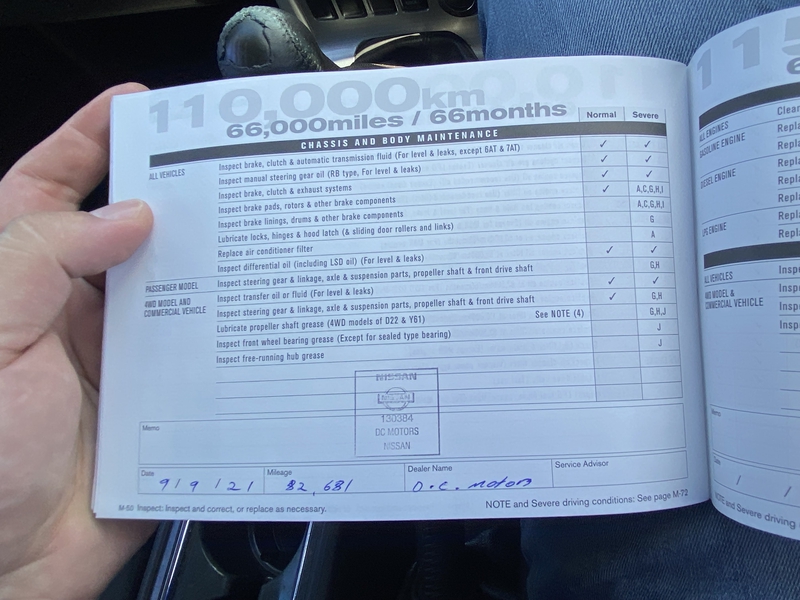 110,000km
66,000miles / 66months
Normal Severe
CHASSIS AND BODY MAINTENANCE
ALL VEHICLES Inspect brake, clutch & automatic transmission fluid (For level & leaks, except 6AT & 7AT) ✓ ✓
Inspect manual steering gear oil (RB type, For level & leaks) ✓ ✓
Inspect brake, clutch & exhaust systems ✓ ✓
Inspect brake pads, rotors & other brake components ✓ A,C,G,H,I
Inspect brake linings, drums & other brake components A,C,G,H,I
Lubricate locks, hinges & hood latch (& sliding door rollers and links) G
Replace air conditioner filter A
Inspect differential oil (including LSD oil) (For level & leaks) ✓ ✓
PASSENGER MODEL Inspect steering gear & linkage, axle & suspension parts, propeller shaft & front drive shaft G,H
4WD MODEL AND COMMERCIAL VEHICLE Inspect transfer oil or fluid (For level & leaks) ✓ ✓
Inspect steering gear & linkage, axle & suspension parts, propeller shaft & front drive shaft ✓ G,H
Lubricate propeller shaft grease (4WD models of D22 & Y61) See NOTE (4) G,H,J
Inspect front wheel bearing grease (Except for sealed type bearing) J
Inspect free-running hub grease J
NISSAN
NISSAN
130384
DC MOTORS
NISSAN
Memo
Date Mileage Dealer Name Service Advisor
9/9/21 82,681 D.C. Motors
M-50 Inspect: Inspect and correct, or replace as necessary. NOTE and Severe driving conditions: See page M-72
115
ALL ENGINES Clear
GASOLINE ENGINE Repla
Repla
DIESEL ENGINE Repla
Repla
Repla
LPG ENGINE Repla
ALL VEHICLES Insp
4WD MODEL & COMMERCIAL VEHICLE Inspe
Inspe
Insp
Memo
Date
/ /
NOTE and Severe driving